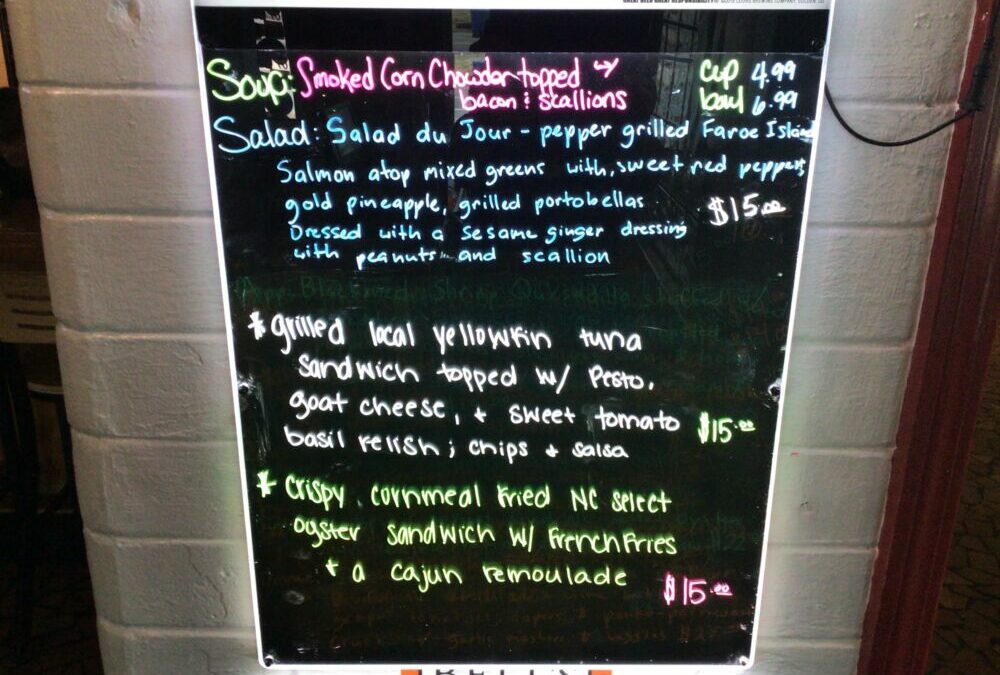 GREAT BEER GREAT RESPONSIBILITY
Soup: Smoked Corn Chowder topped w/ cup 4.99
bacon & scallions bowl 6.99
Salad: Salad du Jour - pepper grilled Faroe Island
Salmon atop mixed greens with, sweet red peppers
gold pineapple, grilled portobellas $15.00
Dressed with a sesame ginger dressing
with peanuts and scallion
* grilled local yellowfin tuna
sandwich topped w/ Pesto,
goat cheese, + sweet tomato $15.00
basil relish; chips + salsa
* crispy cornmeal fried NC select
oyster sandwich w/ french fries
+ a cajun remoulade $15.00